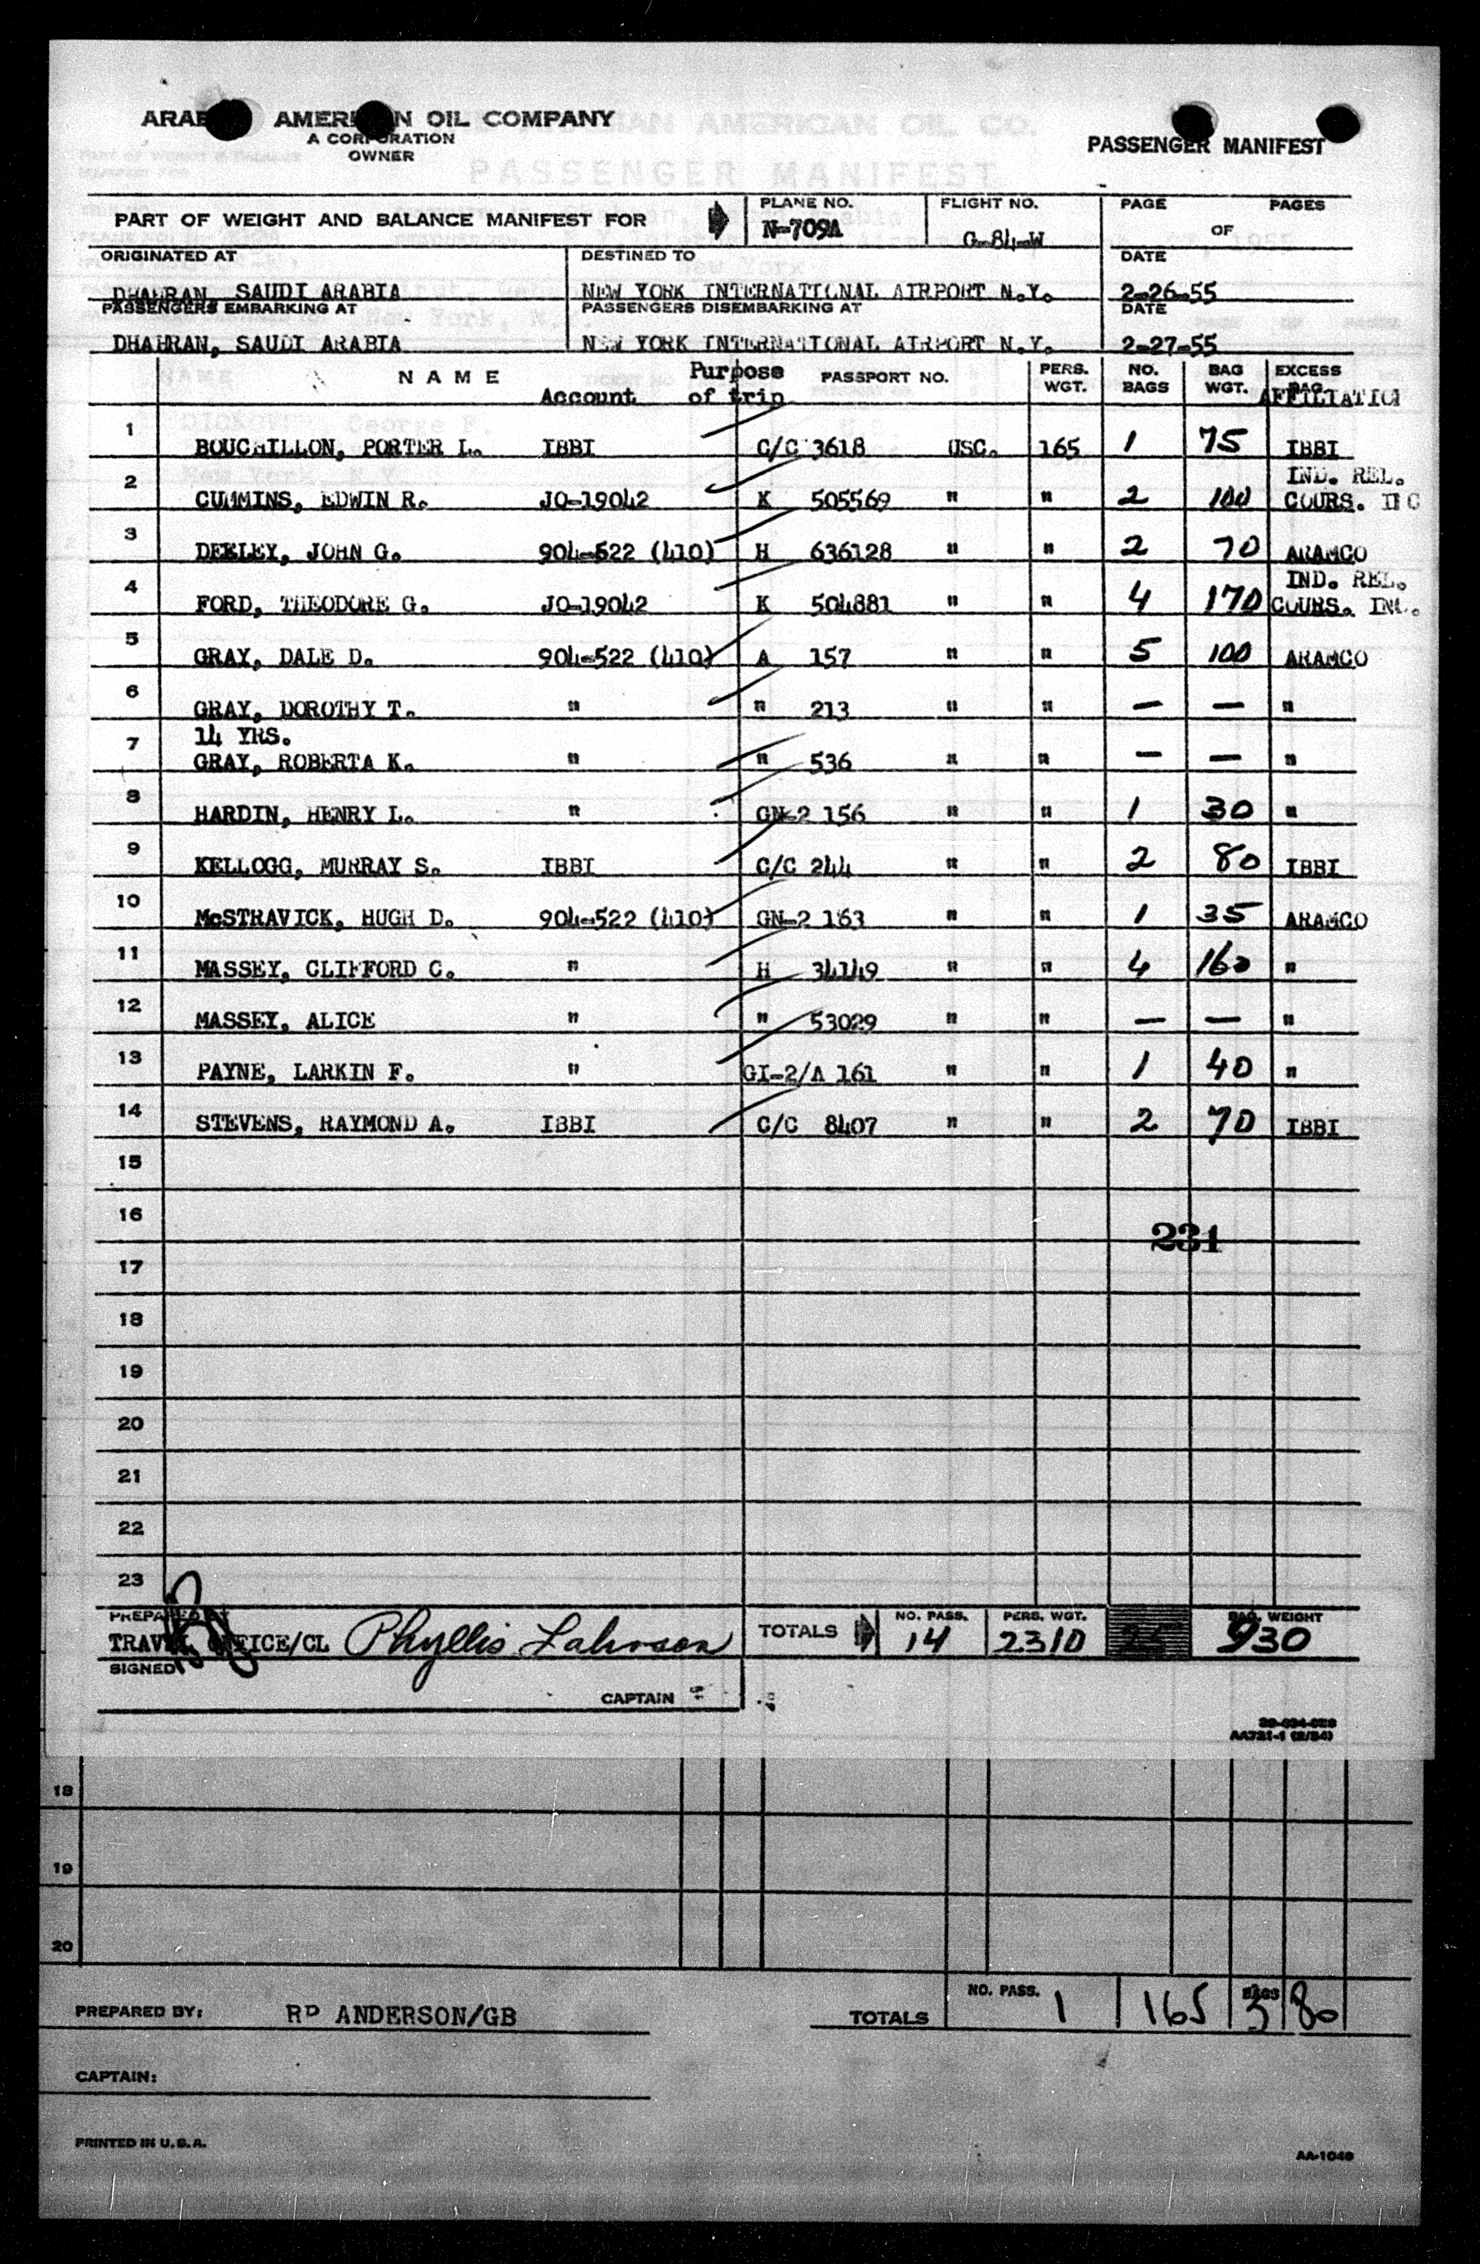 AMERICAN OIL COMPANY
A CORPORATION
OWNER
PASSENGER MANIFEST
PART OF WEIGHT AND BALANCE MANIFEST FOR
PLANE NO.
N-709A
FLIGHT NO.
G-84-W
PAGE OF PAGES
ORIGINATED AT
DHAHRAN, SAUDI ARABIA
DESTINED TO
NEW YORK INTERNATIONAL AIRPORT N.Y.
DATE
2-26-55
PASSENGERS EMBARKING AT
DHAHRAN, SAUDI ARABIA
PASSENGERS DISEMBARKING AT
NEW YORK INTERNATIONAL AIRPORT N.Y.
DATE
2-27-55
NAME Account Purpose of trip PASSPORT NO. PERS. WGT. NO. BAGS BAG WGT. EXCESS BAG. AFFILIATION
1 BOUCHILLON, PORTER L. IBBI C/C 3618 USC. 165 1 75 IBBI
2 CUMMINS, EDWIN R. JO-19042 K 505569 " " 2 100 IND. REL. COURS. INC
3 DEKLEY, JOHN G. 904-522 (410) H 636128 " " 2 70 ARAMCO
4 FORD, THEODORE G. JO-19042 K 504881 " " 4 170 IND. REL. COURS. INC.
5 GRAY, DALE D. 904-522 (410) A 157 " " 5 100 ARAMCO
6 GRAY, DOROTHY T. " " 213 " " — — "
14 YRS.
7 GRAY, ROBERTA K. " " 536 " " — — "
8 HARDIN, HENRY L. " GN-2 156 " " 1 30 "
9 KELLOGG, MURRAY S. IBBI C/C 244 " " 2 80 IBBI
10 McSTRAVICK, HUGH D. 904-522 (410) GN-2 163 " " 1 35 ARAMCO
11 MASSEY, CLIFFORD C. " H 34149 " " 4 160 "
12 MASSEY, ALICE " " 53029 " " — — "
13 PAYNE, LARKIN F. " GI-2/A 161 " " 1 40 "
14 STEVENS, RAYMOND A. IBBI C/C 8407 " " 2 70 IBBI
15
16
231
17
18
19
20
21
22
23
PREPARED BY
TRAVEL OFFICE/CL Phyllis Lahnson
TOTALS NO. PASS. 14 PERS. WGT. 2310 25 BAG. WEIGHT 930
SIGNED
CAPTAIN
AA721-1 (2/54)
18
19
20
PREPARED BY: RD ANDERSON/GB
TOTALS NO. PASS. 1 165 BAGS 3 80
CAPTAIN:
PRINTED IN U.S.A.
AA-1048